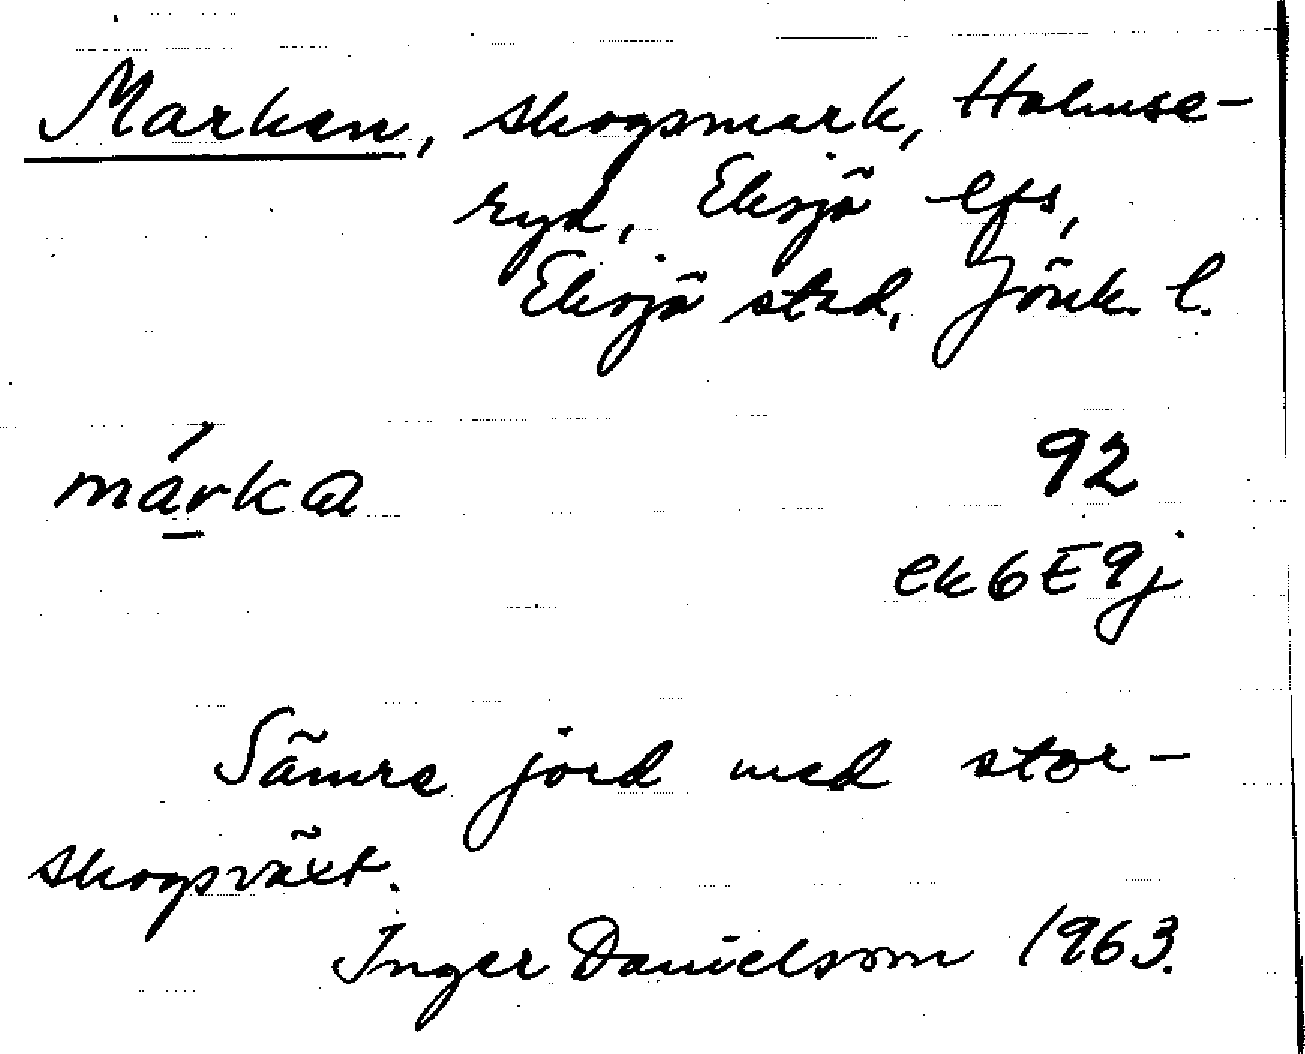 Marken, skogsmark, Holmse-
ryd, Eksjö lfs,
Eksjö stad, Jönk. l.
márka 92
ek 6 E 9j
Sämre jord med stor-
skogsväxt.
Inger Danielsson 1963.